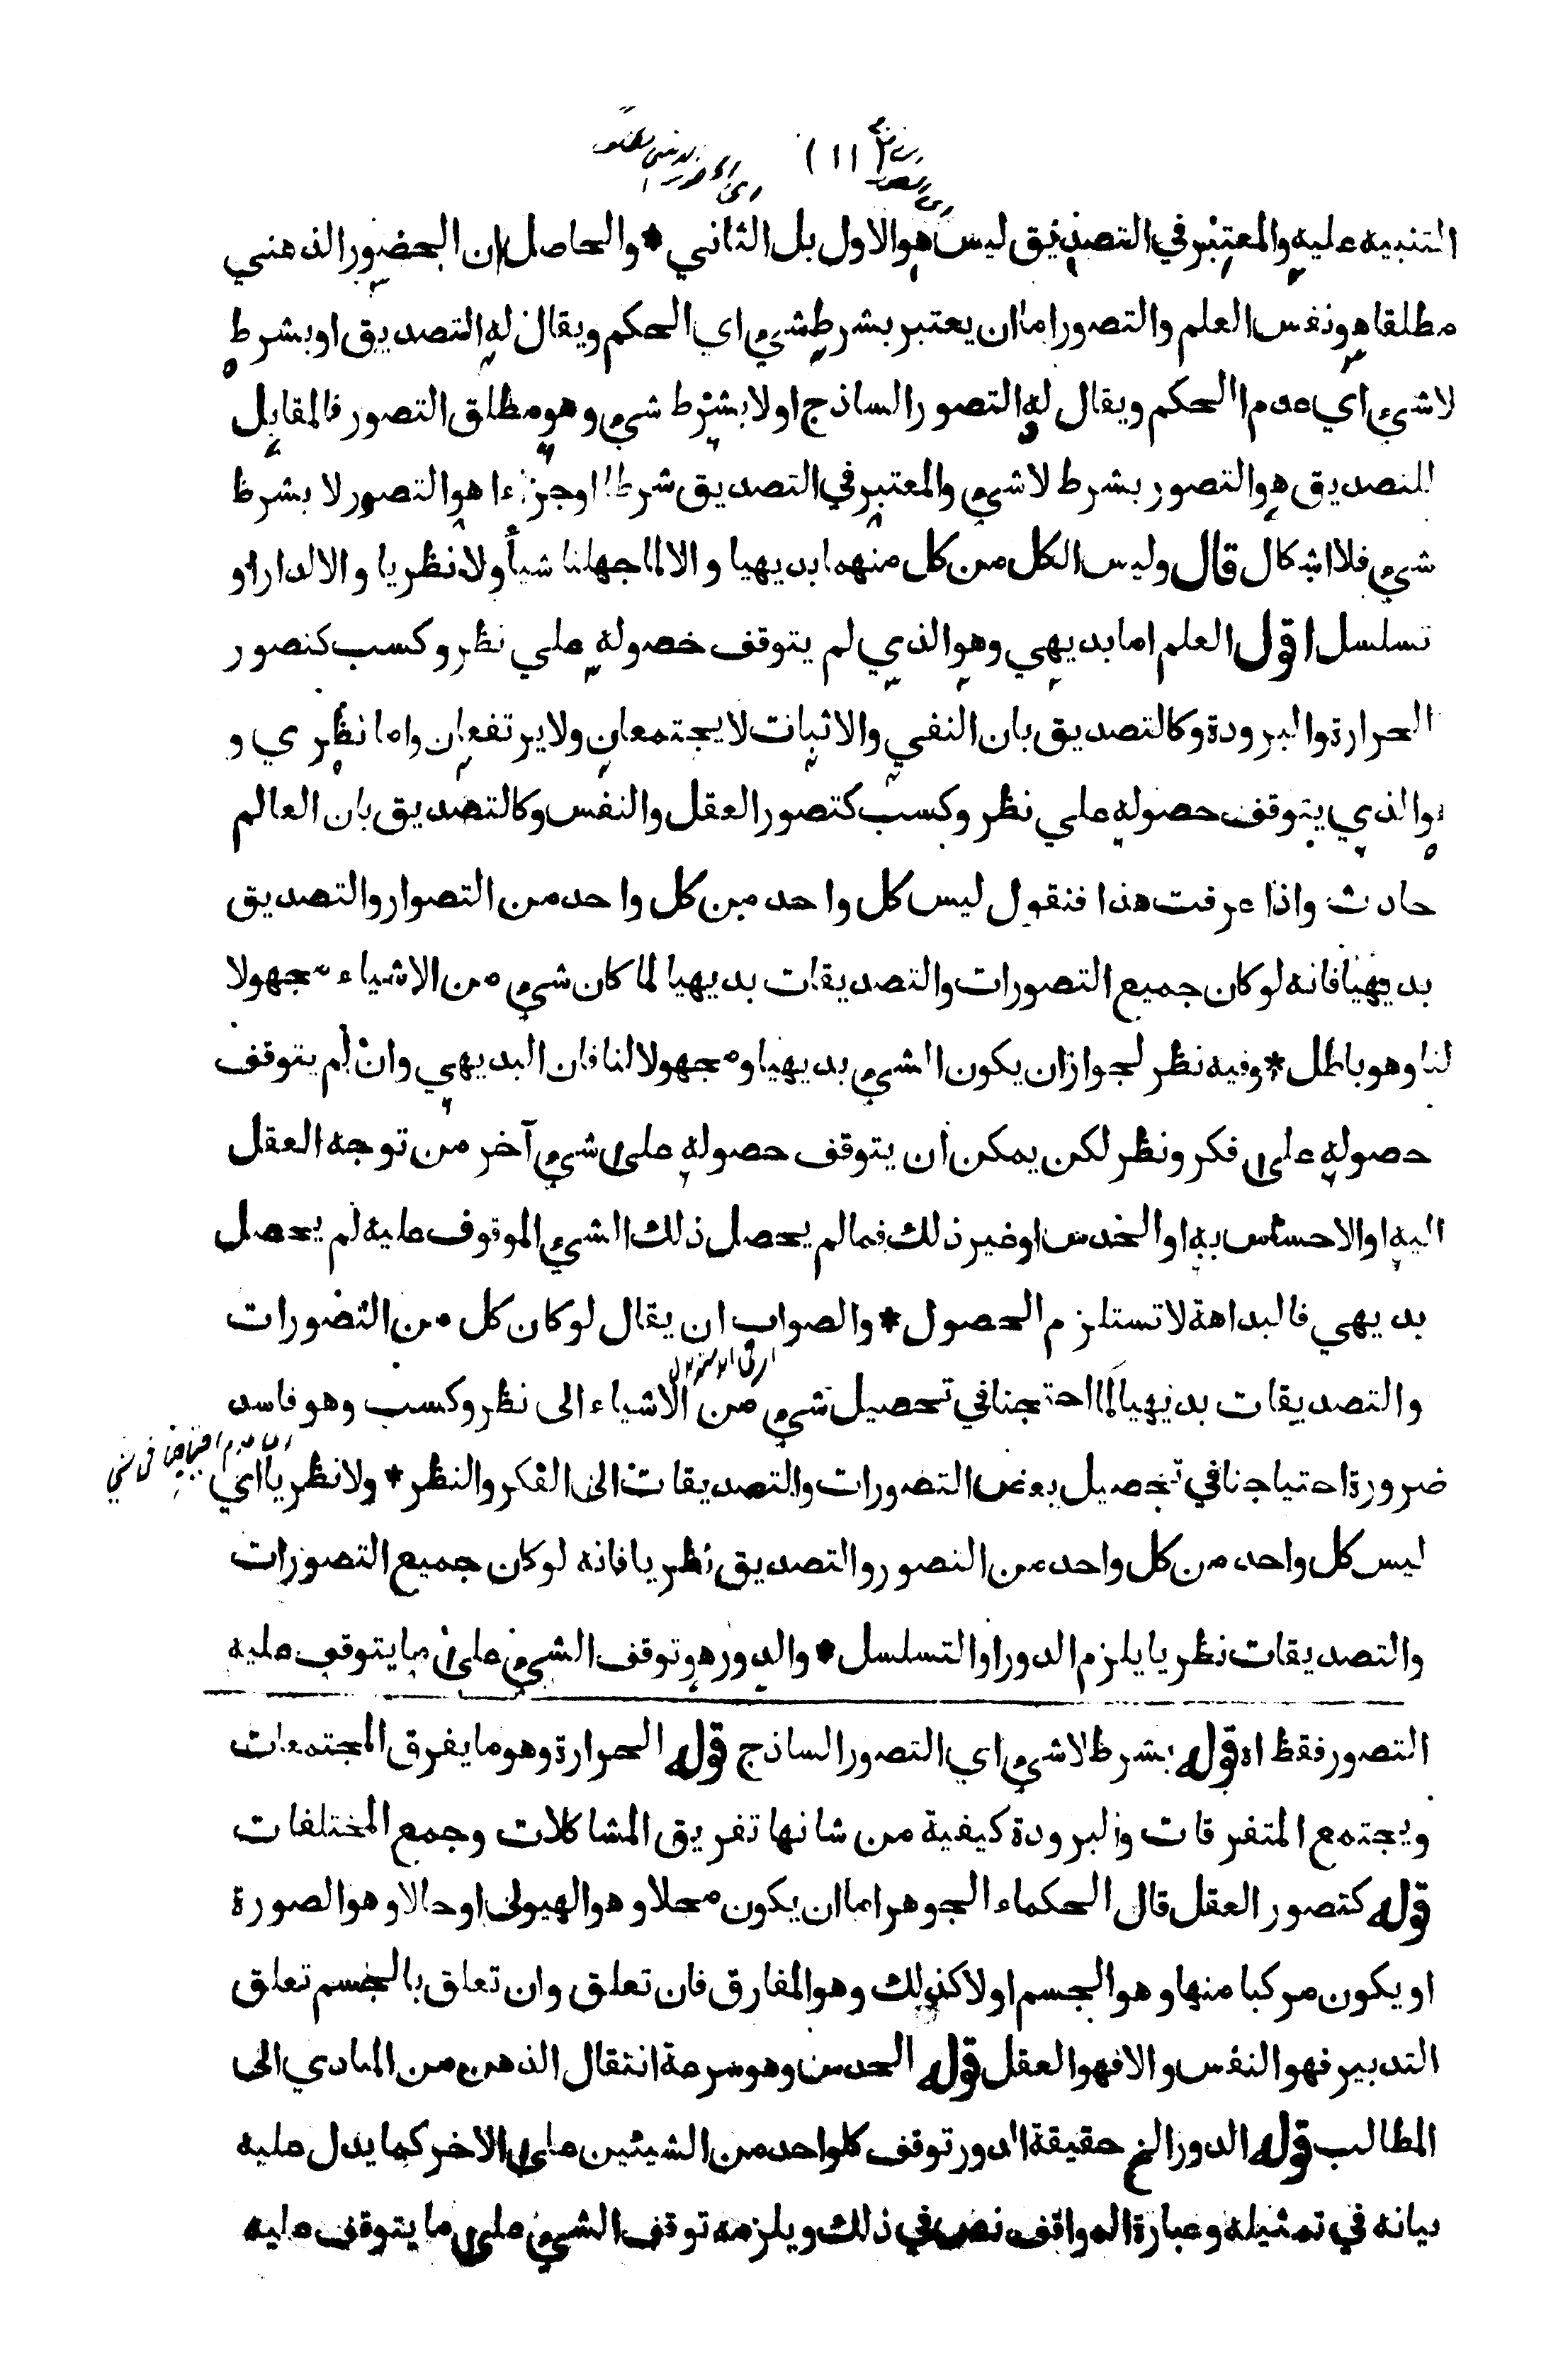 ( ١١ )
التنبيه عليه والمعتبر في التصديق ليس هو الاول بل الثاني * والحاصل ان الحضور الذهني
مطلقا هو نفس العلم والتصور اما ان يعتبر بشرط شيء اي الحكم ويقال له التصديق او بشرط
لا شيء اي عدم الحكم ويقال له التصور الساذج او لا بشرط شيء وهو مطلق التصور فالمقابل
للتصديق هو التصور بشرط لا شيء والمعتبر في التصديق شرطا او جزءا هو التصور لا بشرط
شيء فلا اشكال قال وليس الكل من كل منهما بديهيا والا لما جهلنا شيأ ولا نظريا والا لدار او
تسلسل اقول العلم اما بديهي وهو الذي لم يتوقف حصوله علي نظر وكسب كتصور
الحرارة والبرودة وكالتصديق بان النفي والاثبات لا يجتمعان ولا يرتفعان واما نظري و
هو الذي يتوقف حصوله علي نظر وكسب كتصور العقل والنفس وكالتصديق بان العالم
حادث واذا عرفت هذا فنقول ليس كل واحد من كل واحد من التصوار والتصديق
بديهيا فانه لو كان جميع التصورات والتصديقات بديهيا لما كان شيء من الاشياء مجهولا
لنا وهو باطل * وفيه نظر لجواز ان يكون الشيء بديهيا ومجهولا لنا فان البديهي وان لم يتوقف
حصوله على فكر ونظر لكن يمكن ان يتوقف حصوله على شيء آخر من توجه العقل
اليه او الاحساس به او الحدس او غير ذلك فما لم يحصل ذلك الشيء الموقوف عليه لم يحصل
بديهي فالبداهة لا تستلزم الحصول * والصواب ان يقال لو كان كل من التصورات
والتصديقات بديهيا لما احتجنا في تحصيل شيء من الاشياء الى نظر وكسب وهو فاسد
ضرورة احتياجنا في تحصيل بعض التصورات والتصديقات الى الفكر والنظر * ولا نظريا اي
ليس كل واحد من كل واحد من التصور والتصديق نظريا فانه لو كان جميع التصورات
والتصديقات نظريا يلزم الدور او التسلسل * والدور هو توقف الشيء على ما يتوقف عليه
التصور فقط اه قوله بشرط لا شيء اي التصور الساذج قوله الحرارة وهو ما يفرق المجتمعات
ويجتمع المتفرقات والبرودة كيفية من شانها تفريق المشاكلات وجمع المختلفات
قوله كتصور العقل قال الحكماء الجوهر اما ان يكون محلا وهو الهيولى او حالا وهو الصورة
او يكون مركبا منها وهو الجسم او لا كذلك وهو المفارق فان تعلق وان تعلق بالجسم تعلق
التدبير فهو النفس والا فهو العقل قوله الحدس وهو سرعة انتقال الذهن من المبادي الى
المطالب قوله الدور الخ حقيقة الدور توقف كلواحد من الشيئين على الاخر كما يدل عليه
بيانه في تمثيله وعبارة المواقف نص في ذلك ويلزمه توقف الشيء على ما يتوقف عليه